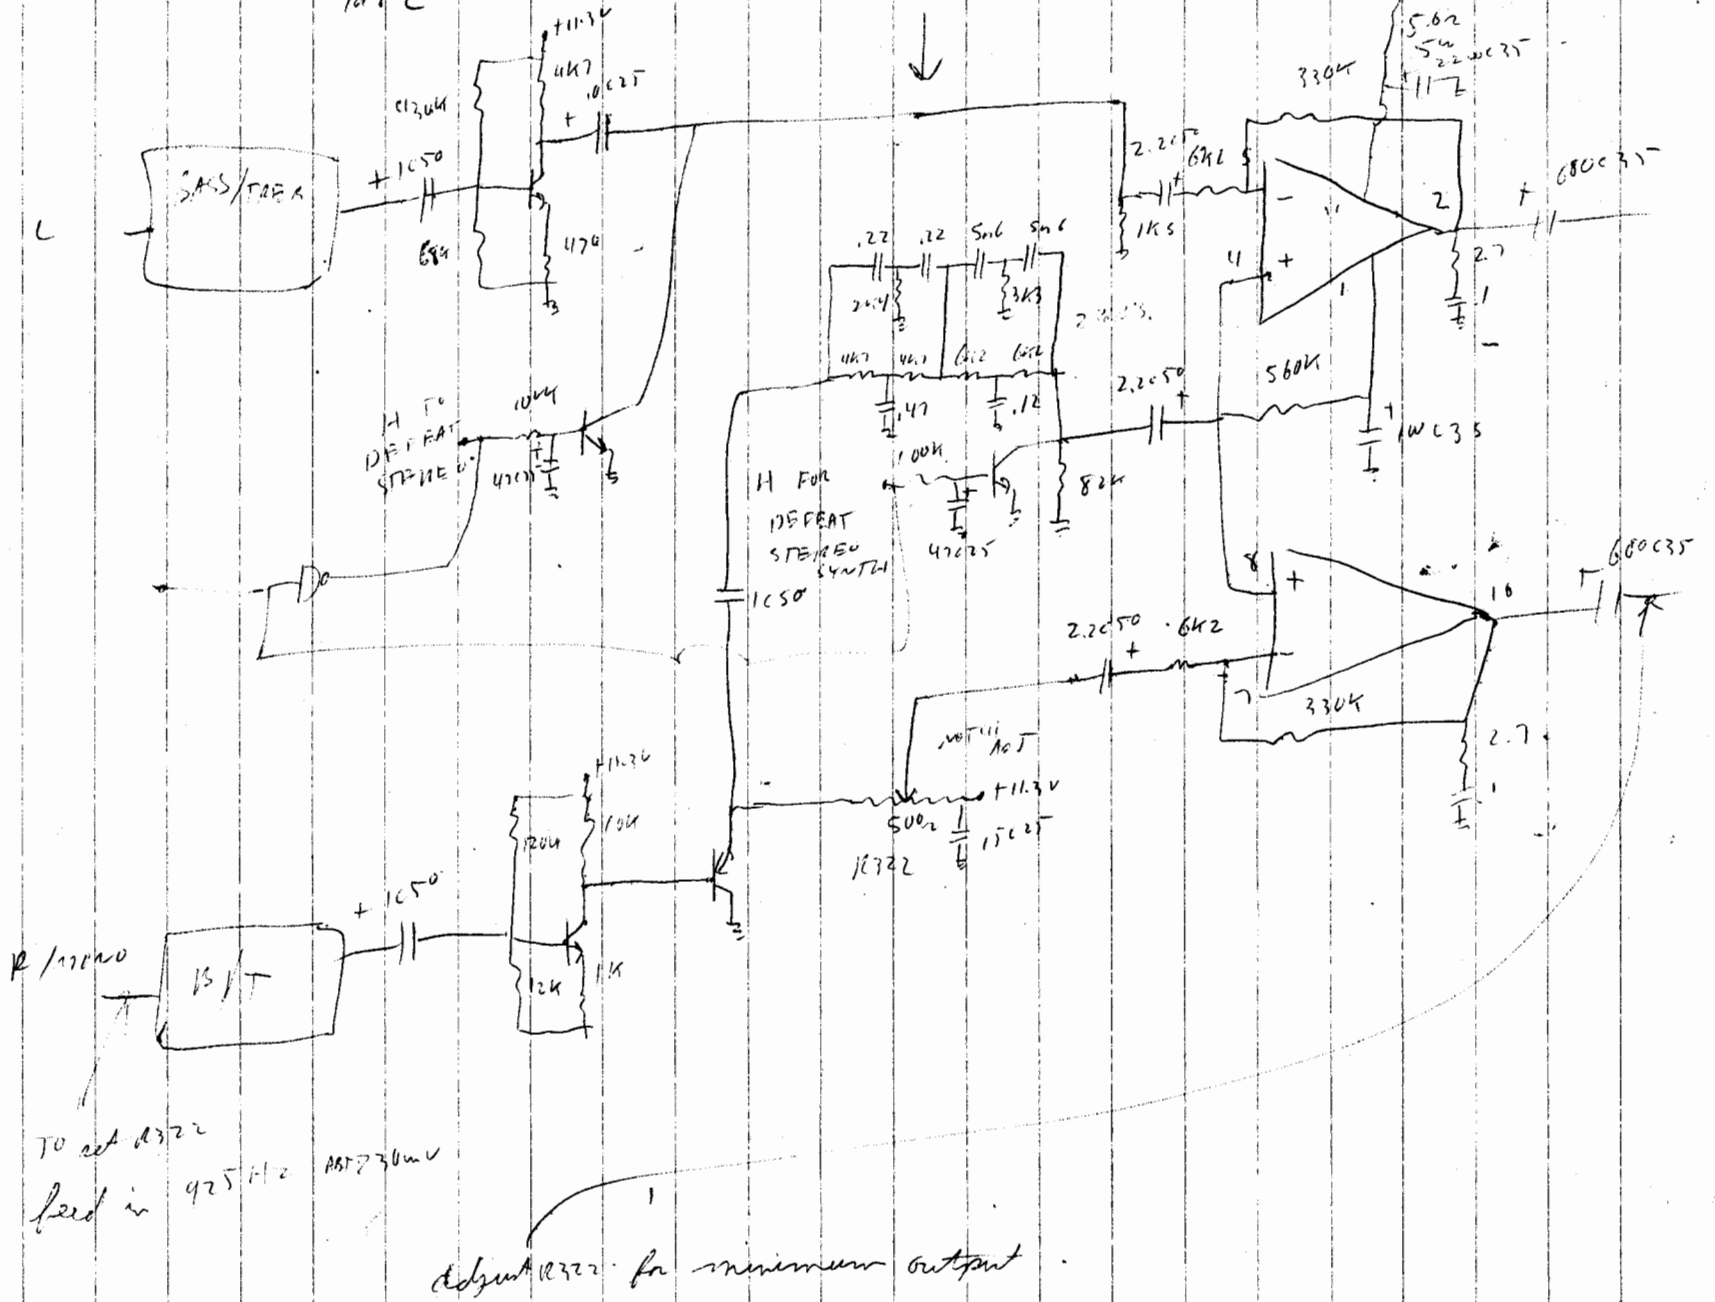 +11.3V
4K7
.10C25
+
+ 1C50
BASS/TREB
L
68K
470
330K
5.6Ω
5W
2200C35
+
2.2C50
6K2
5
+
680C35
1K5
-
4
+
2
1
2.7
.1
.22
.22
5n6
5n6
3K3
4K7
4K7
6K2
6K2
.47
.12
2.2C50
+
560K
+
100C35
H TO
DEFEAT
STEREO
100K
+
47C25
H FOR
DEFEAT
STEREO
SYNTH
100K
+
47C25
82K
1C50
8
+
10
+
680C35
2.2C50
+
6K2
-
7
330K
2.7
.1
NOTCH
ADJ
+11.3V
500Ω
15C25
R322
+11.3V
120K
10K
+ 1C50
12K
1K
R/MONO
B/T
TO set R322
feed in 925Hz ABT 230mV
1
adjust R322 for minimum output.